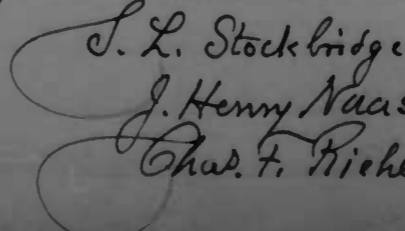 S. L. Stockbridge
J. Henry Naas
Chas. F. Riehl